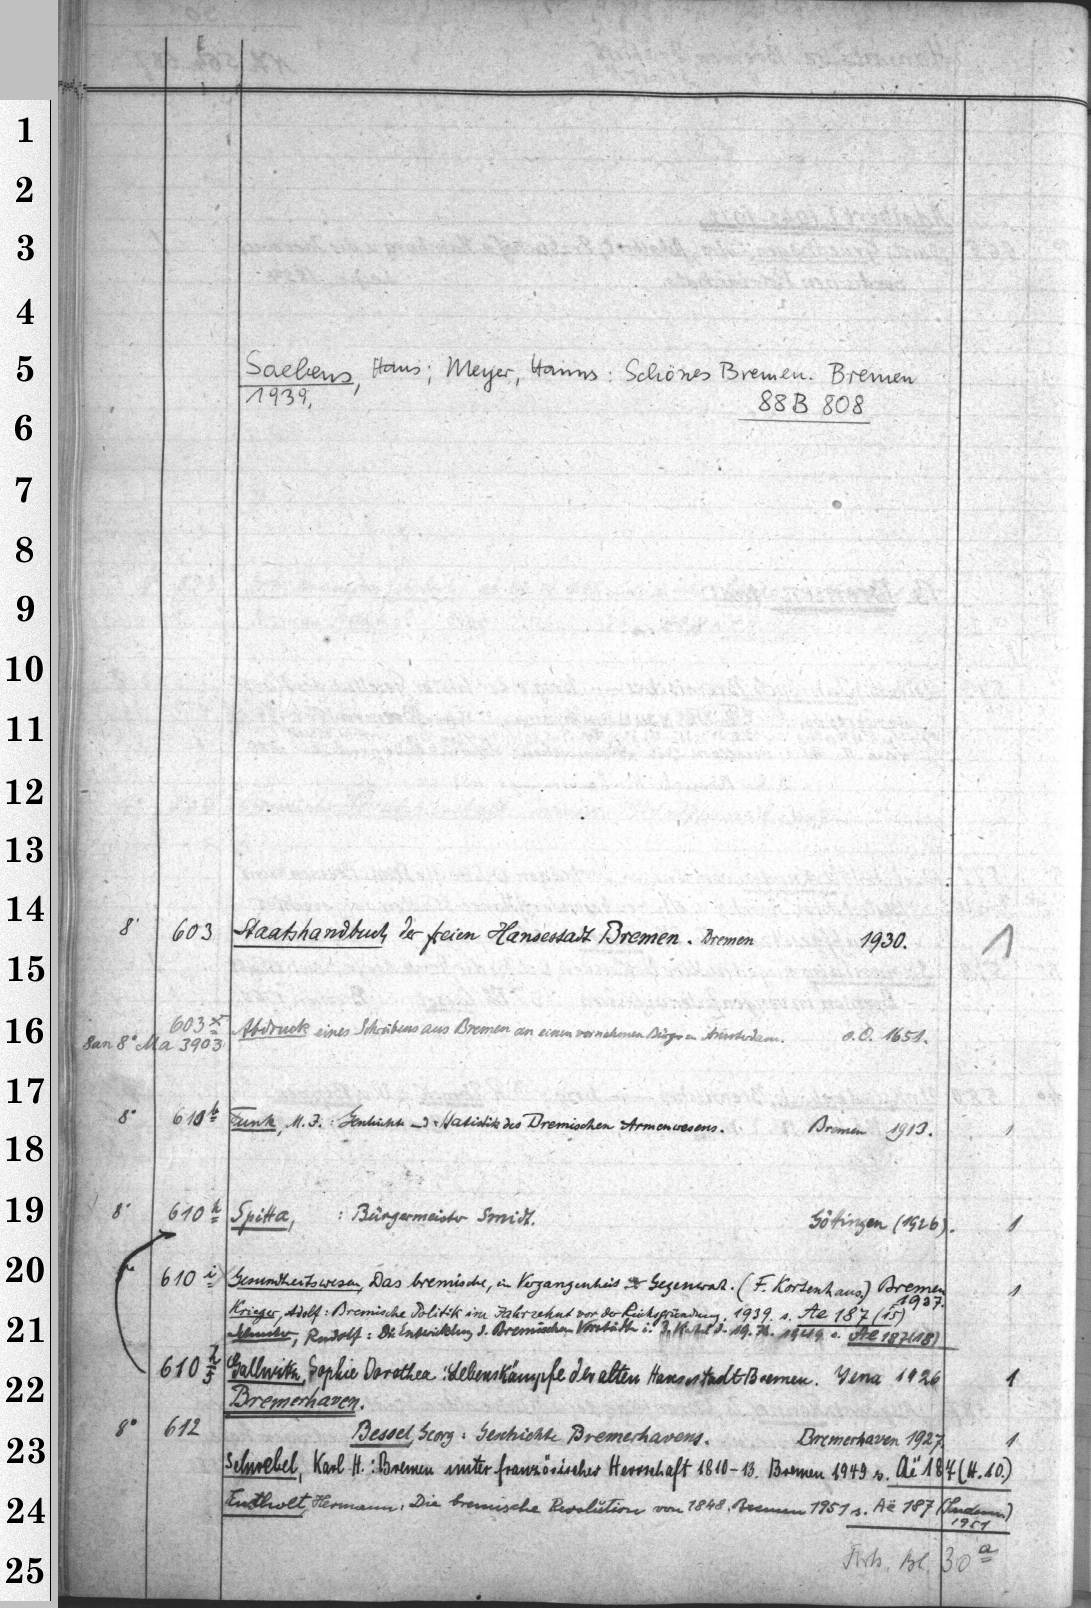 1
2
3
4
5
Saebens, Hans; Meyer, Hanns: Schönes Bremen. Bremen
1939,
88 B 808
6
7
8
9
10
11
12
13
14
8° 603 Staatshandbuch der freien Hansestadt Bremen. Bremen 1930. 1
15
603 x
16
Abdruck eines Schreibens aus Bremen an einen vornehmen Bürger in Amsterdam. o.O. 1651.
8 an 8° Ma 3903
17
8° 610 b Funk, M. J.: Geschichte und Statistik des Bremischen Armenwesens. Bremen 1913. 1
18
19
8° 610 h Spitta, : Bürgermeister Smidt. Göttingen (1926). 1
20
610 i Gesundheitswesen, Das bremische, in Vergangenheit u. Gegenwart. (F. Kortenhaus) Bremen 1
1937.
Krieger, Adolf: Bremische Politik im Jahrzehnt vor der Reichsgründung. 1939. s. Ae 187 (15)
21
Rudolf: Die Entwicklung d. Bremischen Vorstädte i. 1949 s. Ae 187 (18)
610 Gallwitz, Sophie Dorothea: Lebenskämpfe der alten Hansestadt Bremen. Jena 1926 1
22
Bremerhaven.
8° 612 Bessel, Georg: Geschichte Bremerhavens. Bremerhaven 1927. 1
23
Schwebel, Karl H.: Bremen unter französischer Herrschaft 1810-13. Bremen 1949 s. Aë 187 (H. 10.)
24
Entholt, Hermann: Die bremische Revolution von 1848. Bremen 1951 s. Aë 187
1951
25
Bl. 30 a